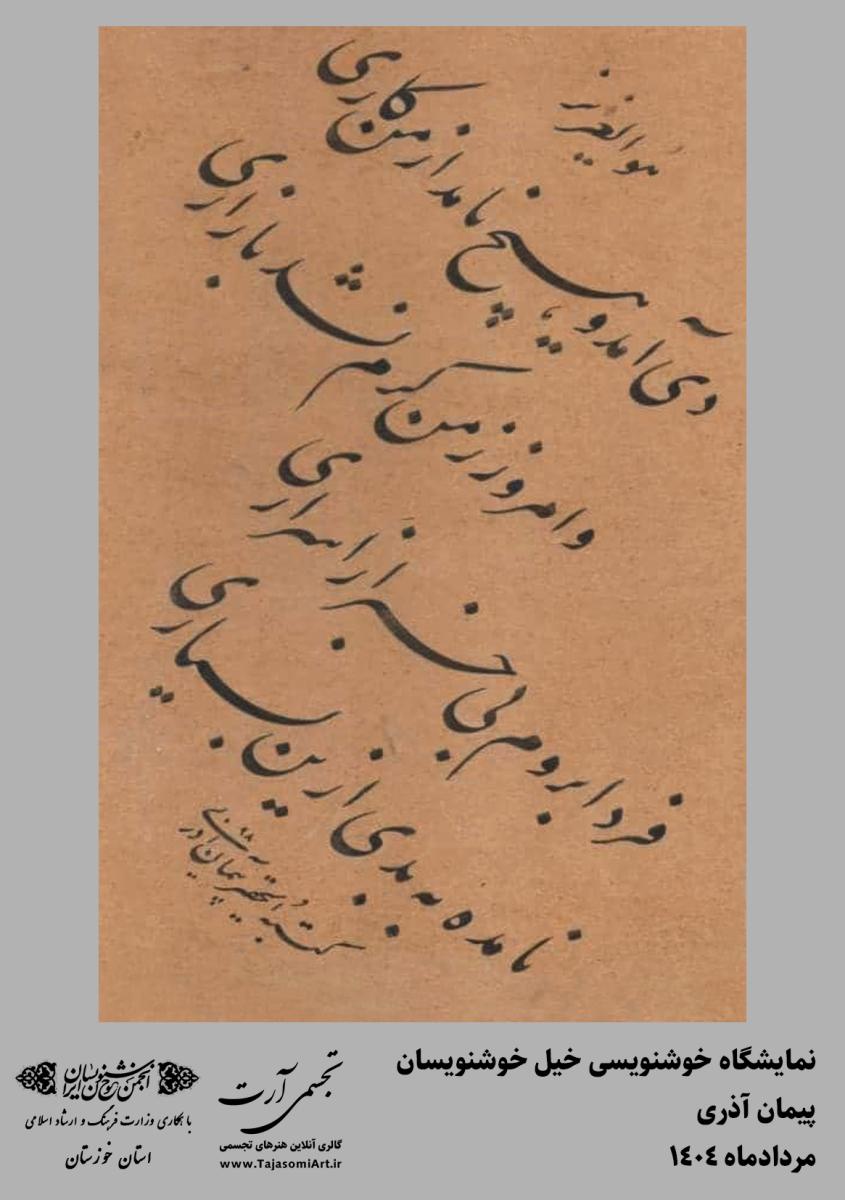 هوالعزیز
دی آمد و هیچ نامد از من کاری
وامروز ز من گرم نشد بازاری
فردا بروم بی خبر از اسراری
نامده به بدی ازین بسیاری
کتبه الحقیر پیمان آذری ۹۸
نمایشگاه خوشنویسی خیل خوشنویسان
پیمان آذری
مردادماه ۱۴۰۴
تجسمی آرت
گالری آنلاین هنرهای تجسمی
www.TajasomiArt.ir
انجمن خوشنویسان ایران
با همکاری وزارت فرهنگ و ارشاد اسلامی
استان خوزستان